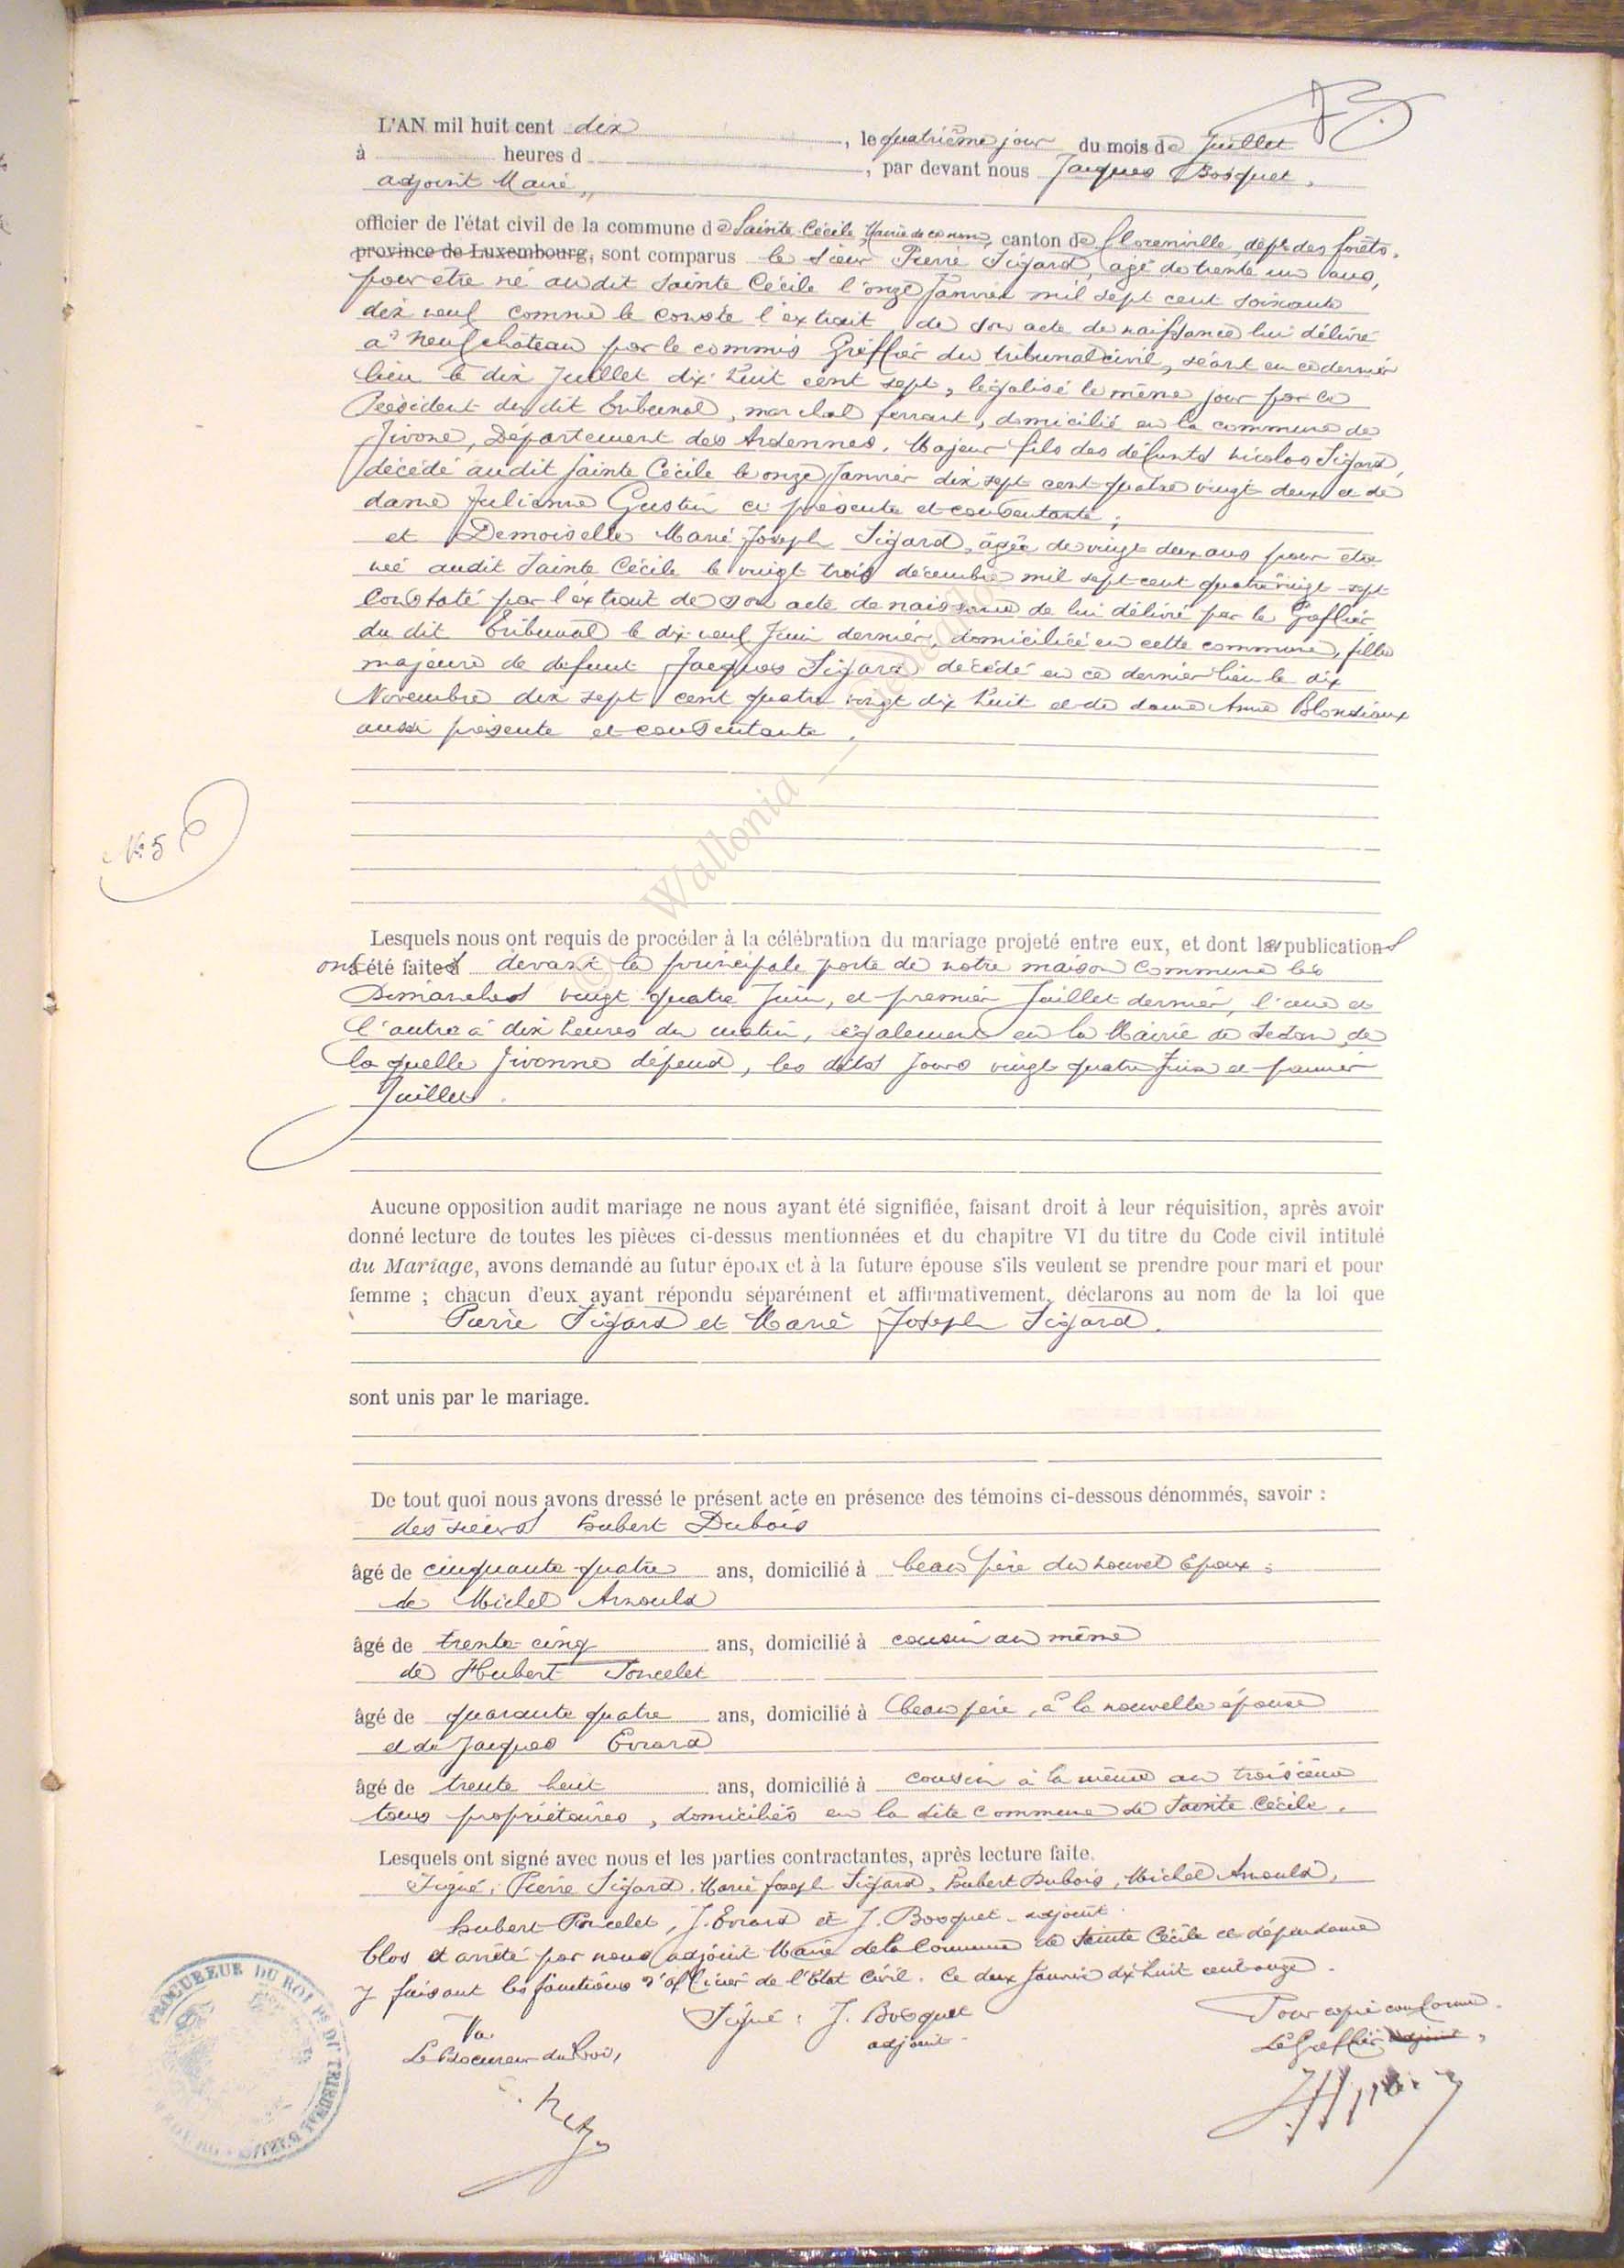 L'AN mil huit cent dix, le quatrième jour du mois de Juillet
à heures d, par devant nous Jacques Bosquet,
adjoint Maire,
officier de l'état civil de la commune de Sainte Cécile, Mairie de ce nom, canton de Florenville, dépt des forêts,
province de Luxembourg, sont comparus le sieur Pierre Sigard, agé de trente un ans,
pour etre né audit Sainte Cécile l'onze Janvier mil sept cent soixante
dix neuf comme le conste l'extrait de son acte de naissance lui délivré
à Neufchâteau par le commis Greffier du tribunal civil, séant en ce dernier
lieu le dix Juillet dix huit cent sept, légalisé le même jour par le
Président du dit Tribunal, marchal ferrant, domicilié en la commune de
Jivone, Département des Ardennes. Majeur fils des défunts Nicolas Sigard,
décédé audit Sainte Cécile le onze Janvier dix sept cent quatre vingt deux et de
dame Julienne Gustin ci présente et consentante;
et Demoiselle Marie Joseph Sigard, âgée de vingt deux ans pour être
née audit Sainte Cécile le vingt trois décembre mil sept cent quatre vingt-sept
Constaté par l'extrait de son acte de naissance de lui délivré par le Greffier
du dit Tribunal le dix neuf Juin dernier, domiciliée en cette commune, fille
majeure de defunt Jacques Sigard décédé en ce dernier lieu le dix
Novembre dix sept cent quatre vingt dix huit et de dame Anne Blondiaux
aussi présente et consentante.
© Wallonia
N° 56
Lesquels nous ont requis de procéder à la célébration du mariage projeté entre eux, et dont les publications
ont été faites devant la principale porte de notre maison Commune les
Dimanches vingt quatre Juin, et premier Juillet dernier, l'une et
l'autre à dix heures du matin, également en la Mairie de Sedan de
laquelle Jivonne dépend, les dits jours vingt quatre Juin et premier
Juillet.
Aucune opposition audit mariage ne nous ayant été signifiée, faisant droit à leur réquisition, après avoir
donné lecture de toutes les pièces ci-dessus mentionnées et du chapitre VI du titre du Code civil intitulé
du Mariage, avons demandé au futur époux et à la future épouse s'ils veulent se prendre pour mari et pour
femme ; chacun d'eux ayant répondu séparément et affirmativement, déclarons au nom de la loi que
Pierre Sigard et Marie Joseph Sigard.
sont unis par le mariage.
De tout quoi nous avons dressé le présent acte en présence des témoins ci-dessous dénommés, savoir :
des sieurs hubert Dubois
âgé de cinquante-quatre ans, domicilié à beau père du nouvel Epoux;
de Michel Arnould
âgé de trente-cinq ans, domicilié à cousin au même
de Hubert Poncelet
âgé de quarante quatre ans, domicilié à beau père, à la nouvelle épouse
et de Jacques Evrard
âgé de trente huit ans, domicilié à cousin à la même au troisième
tous propriétaires, domiciliés en la dite commune de Sainte Cécile.
Lesquels ont signé avec nous et les parties contractantes, après lecture faite.
Signé, Pierre Sigard, Marie Joseph Sigard, hubert Dubois, Michel Arnould,
hubert Poncelet, J. Evrard et J. Bosquet adjoint.
Clos et arrêté par nous adjoint Maire de la Commune de Sainte Cécile et dépendance
y faisant les fonctions d'officier de l'Etat Civil. Ce deux Janvier dix huit cent onze.
Signé : J. Bosquet
adjoint
Pour copie conforme.
Le Greffier adjoint,
Vu.
Le Procureur du Roi,
PROCUREUR DU ROI PRÈS DU TRIBUNAL